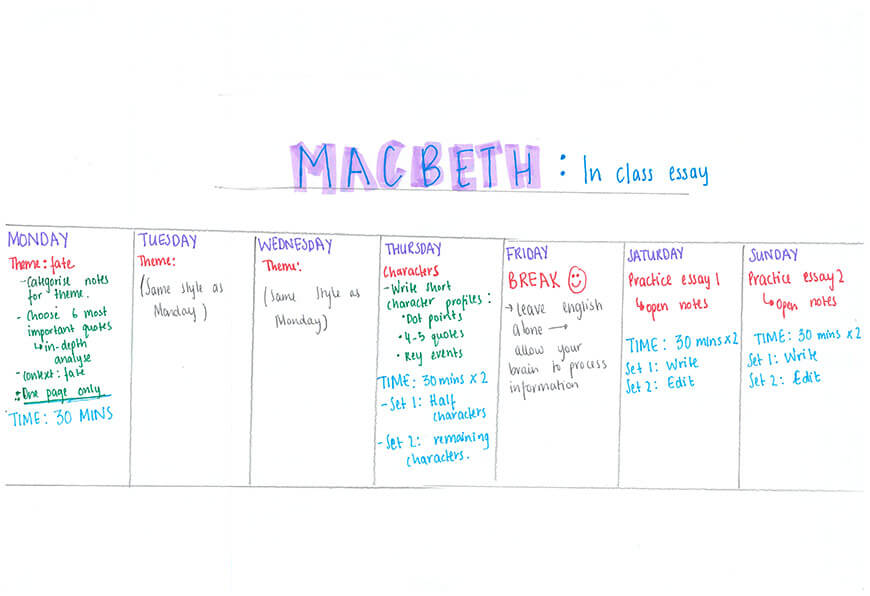 MACBETH : In class essay
MONDAY
Theme: fate
- Categorise notes
for theme.
- Choose 6 most
important quotes
↳ in-depth
analyse
- Context: fate
:: One page only
TIME: 30 MINS
TUESDAY
Theme:
(Same style as
Monday)
WEDNESDAY
Theme:
(Same style as
Monday)
THURSDAY
Characters
- Write short
character profiles:
• Dot points
• 4-5 quotes
• Key events
TIME: 30 mins x 2
- Set 1: Half
characters
- Set 2: remaining
characters.
FRIDAY
BREAK ☺
→ leave english
alone →
allow your
brain to process
information
SATURDAY
Practice essay 1
↳ open notes
TIME: 30 mins x 2
Set 1: Write
Set 2: Edit
SUNDAY
Practice essay 2
↳ open notes
TIME: 30 mins x 2
Set 1: Write
Set 2: Edit